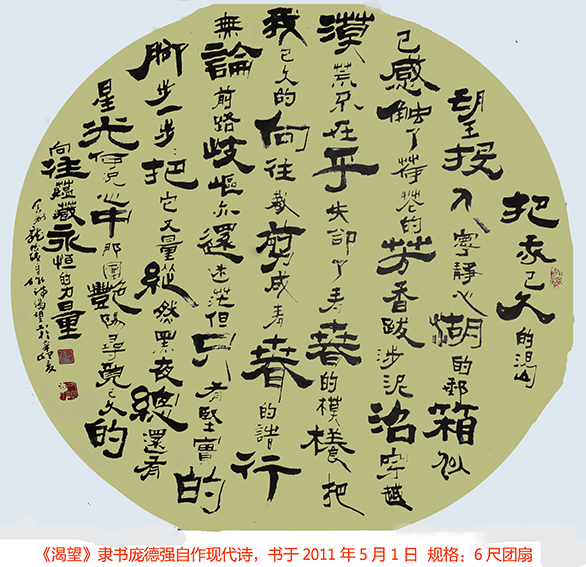 把我已久的渴
望投入寧靜心湖的郵箱似
已感触了荷花的芳香跋涉泥沼穿越
漠荒只在乎失卻了青春的模樣把
我已久的向往裁剪成青春的諧行
無論前路歧嶇亦還迷茫但只有堅實的
脚步一步把它丈量縱然黑夜總還有
星光伴我心中那團艷陽尋覓已久的
向往蘊藏永恒的力量
《渴望》隶书庞德强自作现代诗，书于 2011 年 5 月 1 日 规格：6 尺团扇